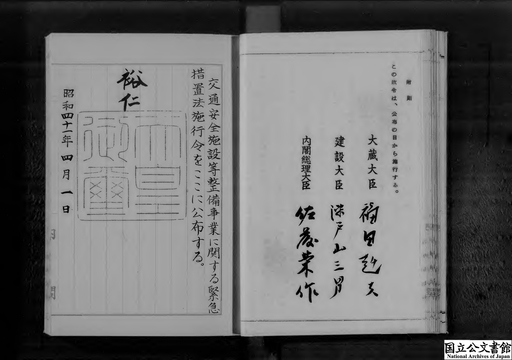 附則
この政令は、公布の日から施行する。
大蔵大臣 福田赳夫
建設大臣 瀬戸山三男
内閣総理大臣 佐藤栄作
交通安全施設等整備事業に関する緊急
措置法施行令をここに公布する。
裕仁
天皇御璽
昭和四十一年四月一日
国立公文書館
National Archives of Japan